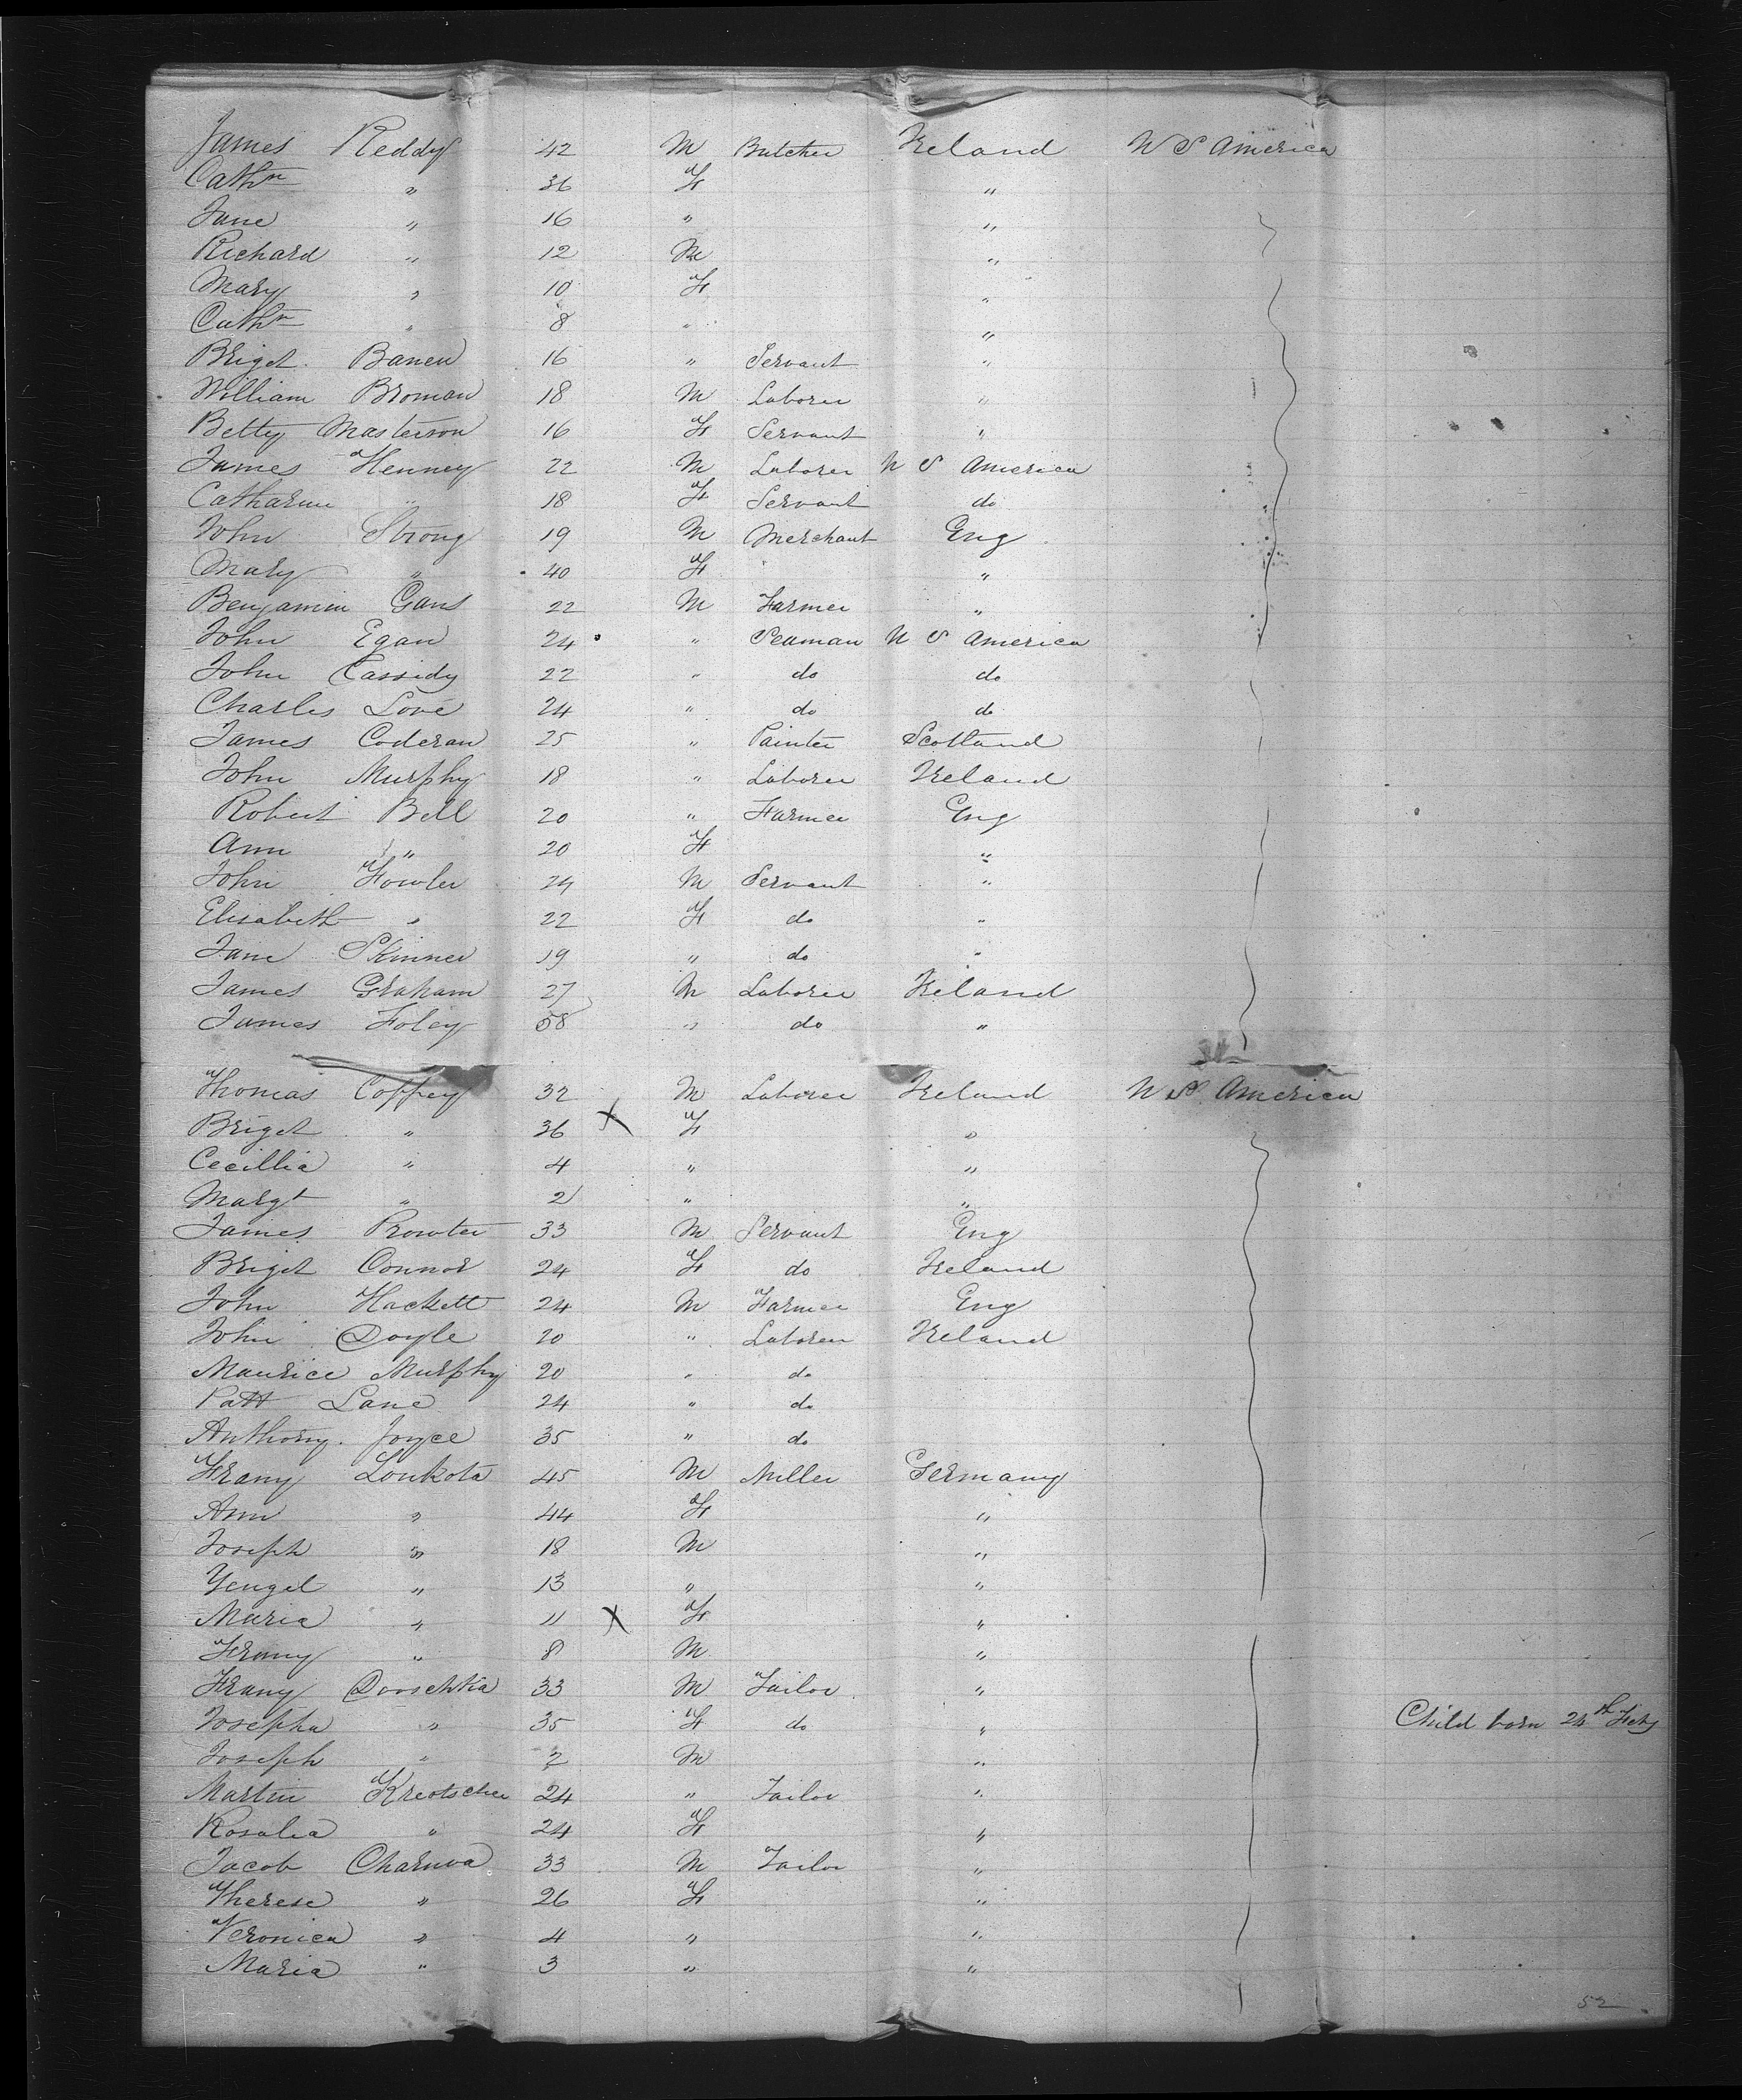 James Reddy 42 M Butcher Ireland U S America
Cathn " 36 F "
Jane " 16 " "
Richard " 12 M "
Mary " 10 F "
Cathn " 8 " "
Briget Banen 16 " Servant "
William Broman 18 M Laborer "
Betty Masterson 16 F Servant "
James Henney 22 M Laborer U S America
Catharine " 18 F Servant do
John Strong 19 M Merchant Eng
Mary " 40 F "
Benjamin Gans 22 M Farmer "
John Egan 24 " Seaman U S America
John Cassidy 22 " do do
Charles Love 24 " do do
James Coderan 25 " Painter Scotland
John Murphy 18 " Laborer Ireland
Robert Bell 20 " Farmer Eng
Ann " 20 F "
John Fowler 24 M Servant "
Elisabeth " 22 F do "
Jane Skinner 19 " do "
James Graham 27 M Laborer Ireland
James Foley 58 " do "
Thomas Coffey 32 M Laborer Ireland U S America
Briget " 36 X F "
Cecillia " 4 " "
Margt " 2 " "
James Prowter 33 M Servant Eng
Briget Connor 24 F do Ireland
John Hackett 24 M Farmer Eng
John Doyle 20 " Laborer Ireland
Maurice Murphy 20 " do
Patt Lane 24 " do
Anthony Joyce 35 " do
Frany Loukota 45 M Miller Germany
Ann " 44 F "
Joseph " 18 M "
Yengel " 13 " "
Maria " 11 X F "
Frany " 8 M "
Frany Dorschka 33 M Tailor "
Josepha " 35 F do " Child born 24th Feby
Joseph " 2 M "
Martin Kreotscher 24 " Tailor "
Rosalia " 24 F "
Jacob Charuva 33 M Tailor "
Therese " 26 F "
Veronica " 4 " "
Maria " 3 " "
52